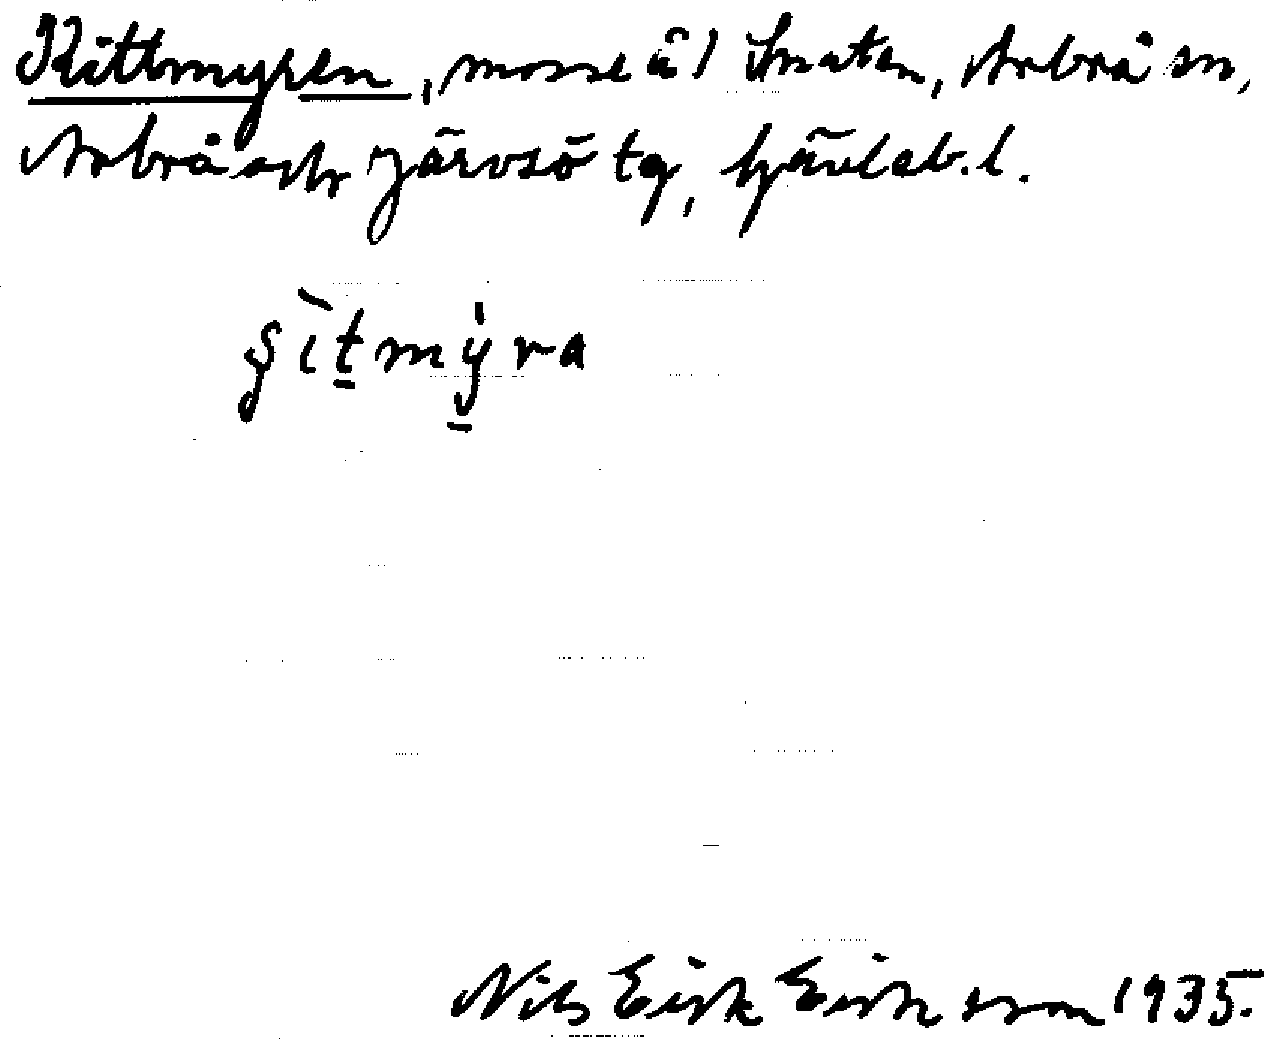 Kittmyren, mosse å 1 Smaten, Arbrå sn,
Arbrå och Järvsö tg, Gävleb. l.
gìtmýra
Nils Erik Eriksson 1935.